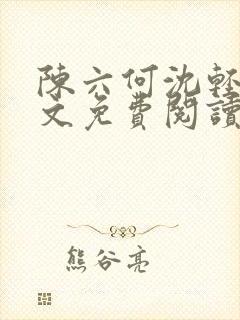 陳六何沈輕
文免費閱讀
熊谷亮